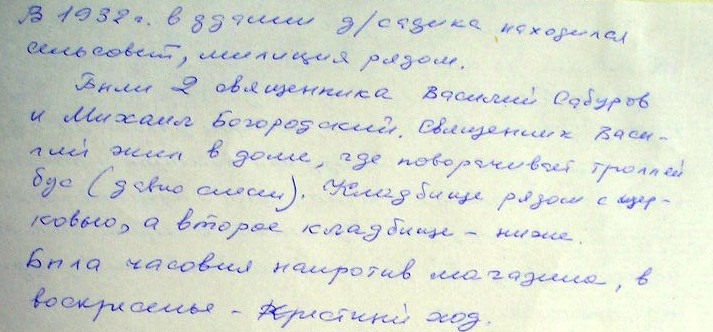 В 1932 г. в здании д/садика находился
сельсовет, милиция рядом.
Были 2 священника Василий Сабуров
и Михаил Богородский. Священник Васи-
лий жил в доме, где поворачивает троллей
бус (давно снесли). Кладбище рядом с цер-
ковью, а второе кладбище - ниже.
Была часовня напротив магазина, в
воскресенье - Крестный ход.